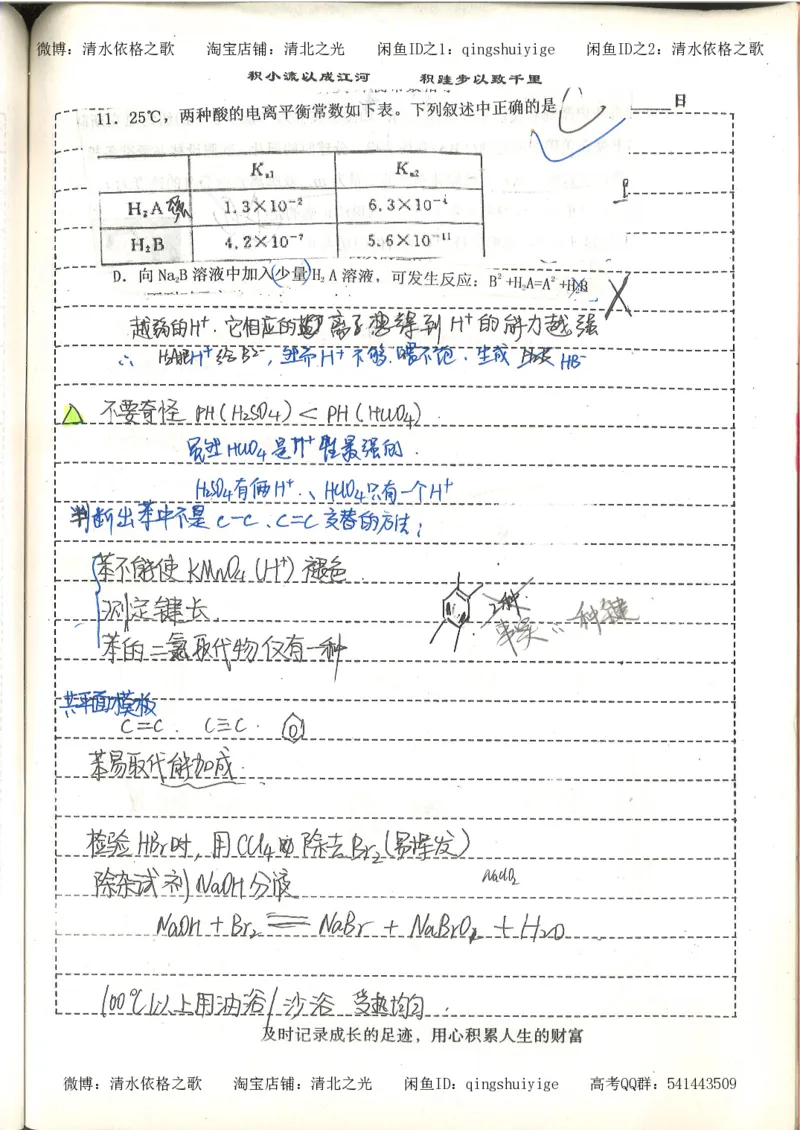 微博：清水依格之歌 淘宝店铺：清北之光 闲鱼ID之1：qingshuiyige 闲鱼ID之2：清水依格之歌
积小流以成江河 积跬步以致千里
日
11．25℃，两种酸的电离平衡常数如下表。下列叙述中正确的是
Ka1 Ka2
H₂A 强 1.3×10⁻² 6.3×10⁻⁴
H₂B 4.2×10⁻⁷ 5.6×10⁻¹¹
D．向 Na₂B 溶液中加入少量 H₂A 溶液，可发生反应：B²⁻+H₂A=A²⁻+H₂B
越弱的H⁺．它相应的 离子想得到 H⁺ 的能力越强
∴ H₂A把H⁺给B²⁻，然而H⁺不够．喂不饱．生成 HB⁻
不要奇怪 PH(H₂SO₄) < PH(HClO₄)
虽然 HClO₄ 是H⁺性最强的．
H₂SO₄有俩H⁺．、HClO₄只有一个H⁺
判断出苯中不是 C-C、C=C 交替的方法；
苯不能使 KMnO₄(H⁺) 褪色
测定键长．
2种
事实 一种键
苯的二氯取代物仅有一种
共平面模板
C=C． C≡C．
苯易取代能加成．
检验 HBr时，用CCl₄ 除去Br₂(易挥发)
除杂试剂 NaOH 分液
NaClO₂
NaOH + Br₂ = NaBr + NaBrO₂ + H₂O
100℃以上用油浴/沙浴 受热均匀．
及时记录成长的足迹，用心积累人生的财富
微博：清水依格之歌 淘宝店铺：清北之光 闲鱼ID：qingshuiyige 高考QQ群：541443509